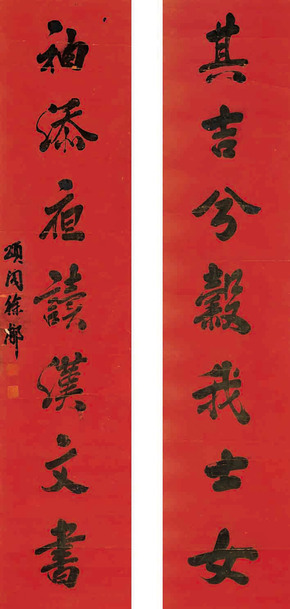 其吉兮穀我士女
袖添夜讀漢文書
頌閣徐郙